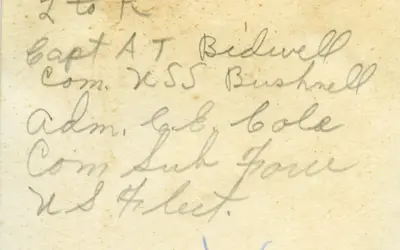 L to R
Capt A T Bidwell
Com. USS Bushnell
Adm. C.E. Cole
Com Sub Force
US Fleet.